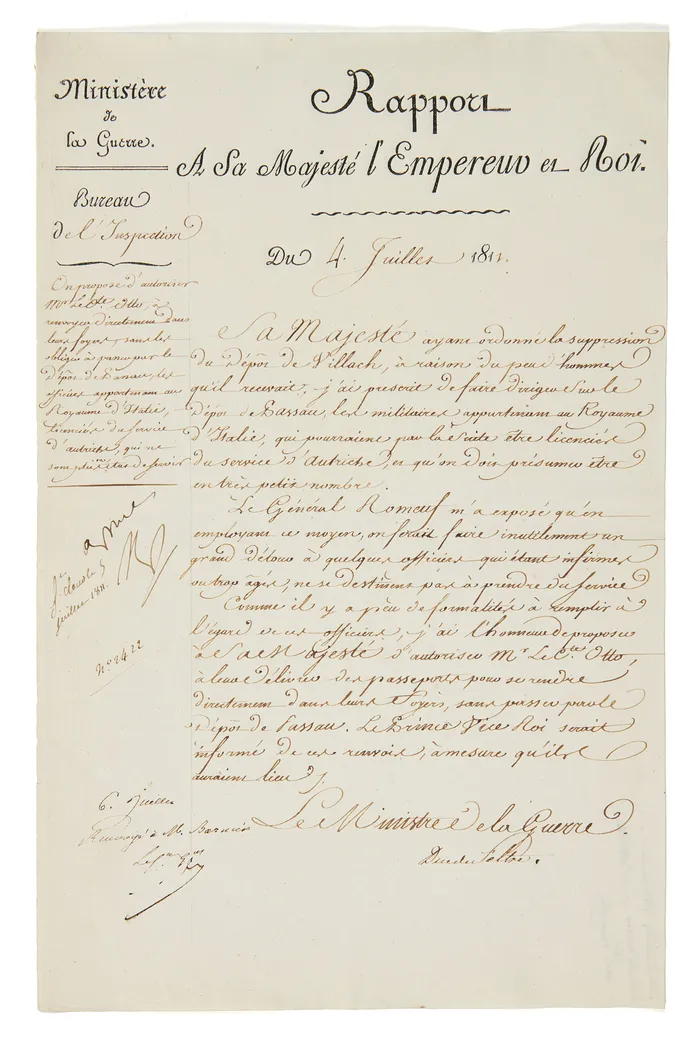 Ministère
de
la Guerre.
Bureau
de l'Inspection
On propose d'autoriser
Mr. Le Cte. Otto, à
renvoyer directement dans
leurs foyers, sans les
obliger à passer par le
dépôt de Passau, les
officiers appartenant au
Royaume d'Italie,
licenciés du service
d'autriche, qui ne
sont plus en état de servir
Rapport
A Sa Majesté l'Empereur et Roi.
Du 4. Juillet 1811.
Sa Majesté ayant ordonné la suppression
du dépôt de Villach, à raison du peu d'hommes
qu'il recevait, j'ai prescrit de faire diriger sur le
dépôt de Passau, les militaires appartenant au Royaume
d'Italie, qui pourraient par la suite être licenciés
du service d'Autriche, et qu'on doit présumer être
en très petit nombre.
Le Général Romeuf m'a exposé qu'en
employant ce moyen, on ferait faire inutilement un
grand détour à quelques officiers qui étant infirmes
ou trop âgés, ne se destinent pas à prendre du service
Comme il y a peu de formalités à remplir à
l'égard de ces officiers, j'ai l'honneur de proposer
à Sa Majesté d'autoriser Mr. Le Cte. Otto,
à leur délivrer des passeports pour se rendre
directement dans leurs foyers, sans passer par le
dépôt de Passau. Le Prince Vice Roi serait
informé de ces renvois, à mesure qu'ils
auraient lieu.
Le Ministre de la Guerre.
Duc de Feltre.
St. Cloud le 5
juillet 1811.
No. 2422
6. Juillet
Renvoyé à Mr.